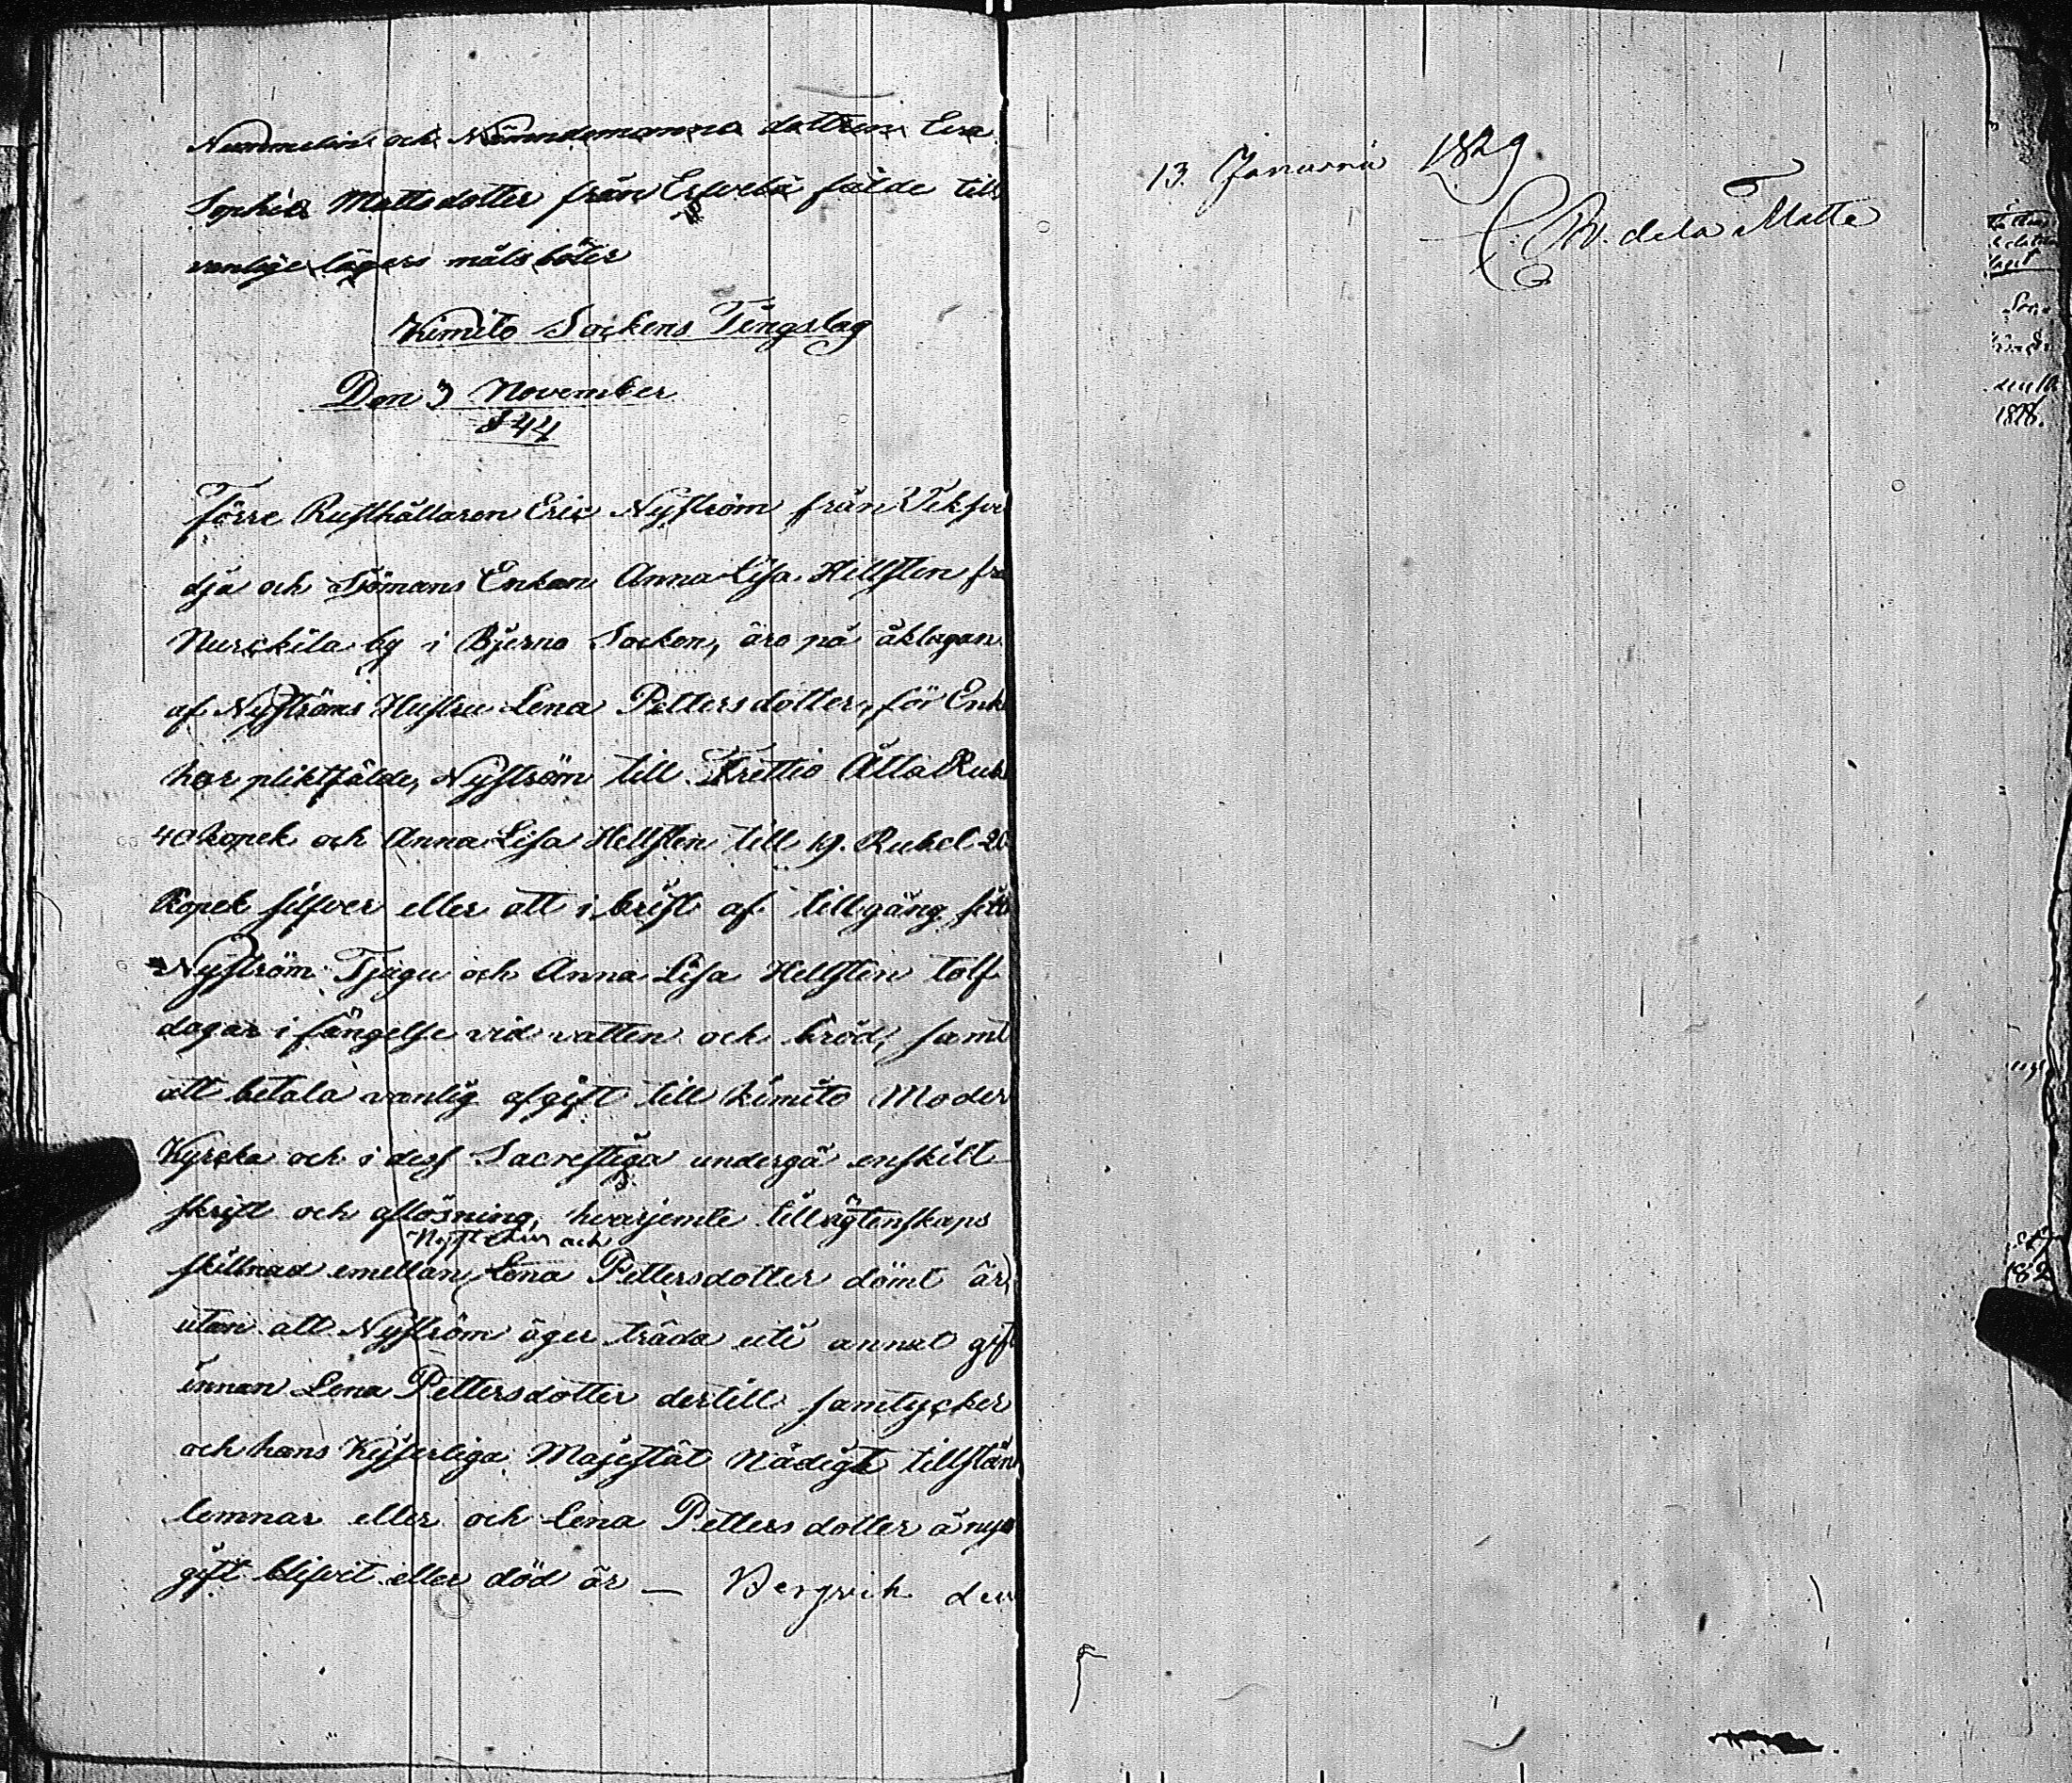 Nummelin och Nämndemanna dottren Eva
Sophia Mattsdotter från fälde till
vanlige lägers måls böter
Kimito Sockens Tingslag
Den 3 November
§ 44
Förre Rusthållaren Eric Nyström från
dja och Sjömans Enkan Anna Lisa Hellsten frå
Nurckila by i Bjerno Socken, äro på åklagan
af Nyströms Hustru Lena Pettersdotter, för Enk
hor pliktfälde, Nyström till Trettio Åtta Rub
40 Kopek och Anna Lisa Hellsten till 19. Rubel 20
Kopek silfver eller att i brist af tillgång sitt
Nyström Tjugu och Anna Lisa Hellsten tolf
dagar i fängelse vid vatten och bröd, samt
att betala vanlig afgift till Kimito Moder
Kyrcka och i dess Sacrestiga undergå enskilt
skrift och aflösning, hvarjemte till ägtenskaps
Nyström och
skillnad emellan Lena Pettersdotter dömt är,
utan att Nyström äger träda uti annat gift
innan Lena Pettersdotter dertill samtycker
och hans Kejserliga Majestät Nådigt tillstån
lemnar eller och Lena Pettersdotter å nyo
gift blifvit eller död är — Bergvik den
13. Januarii 1829
C: W. de la Motte
1828.